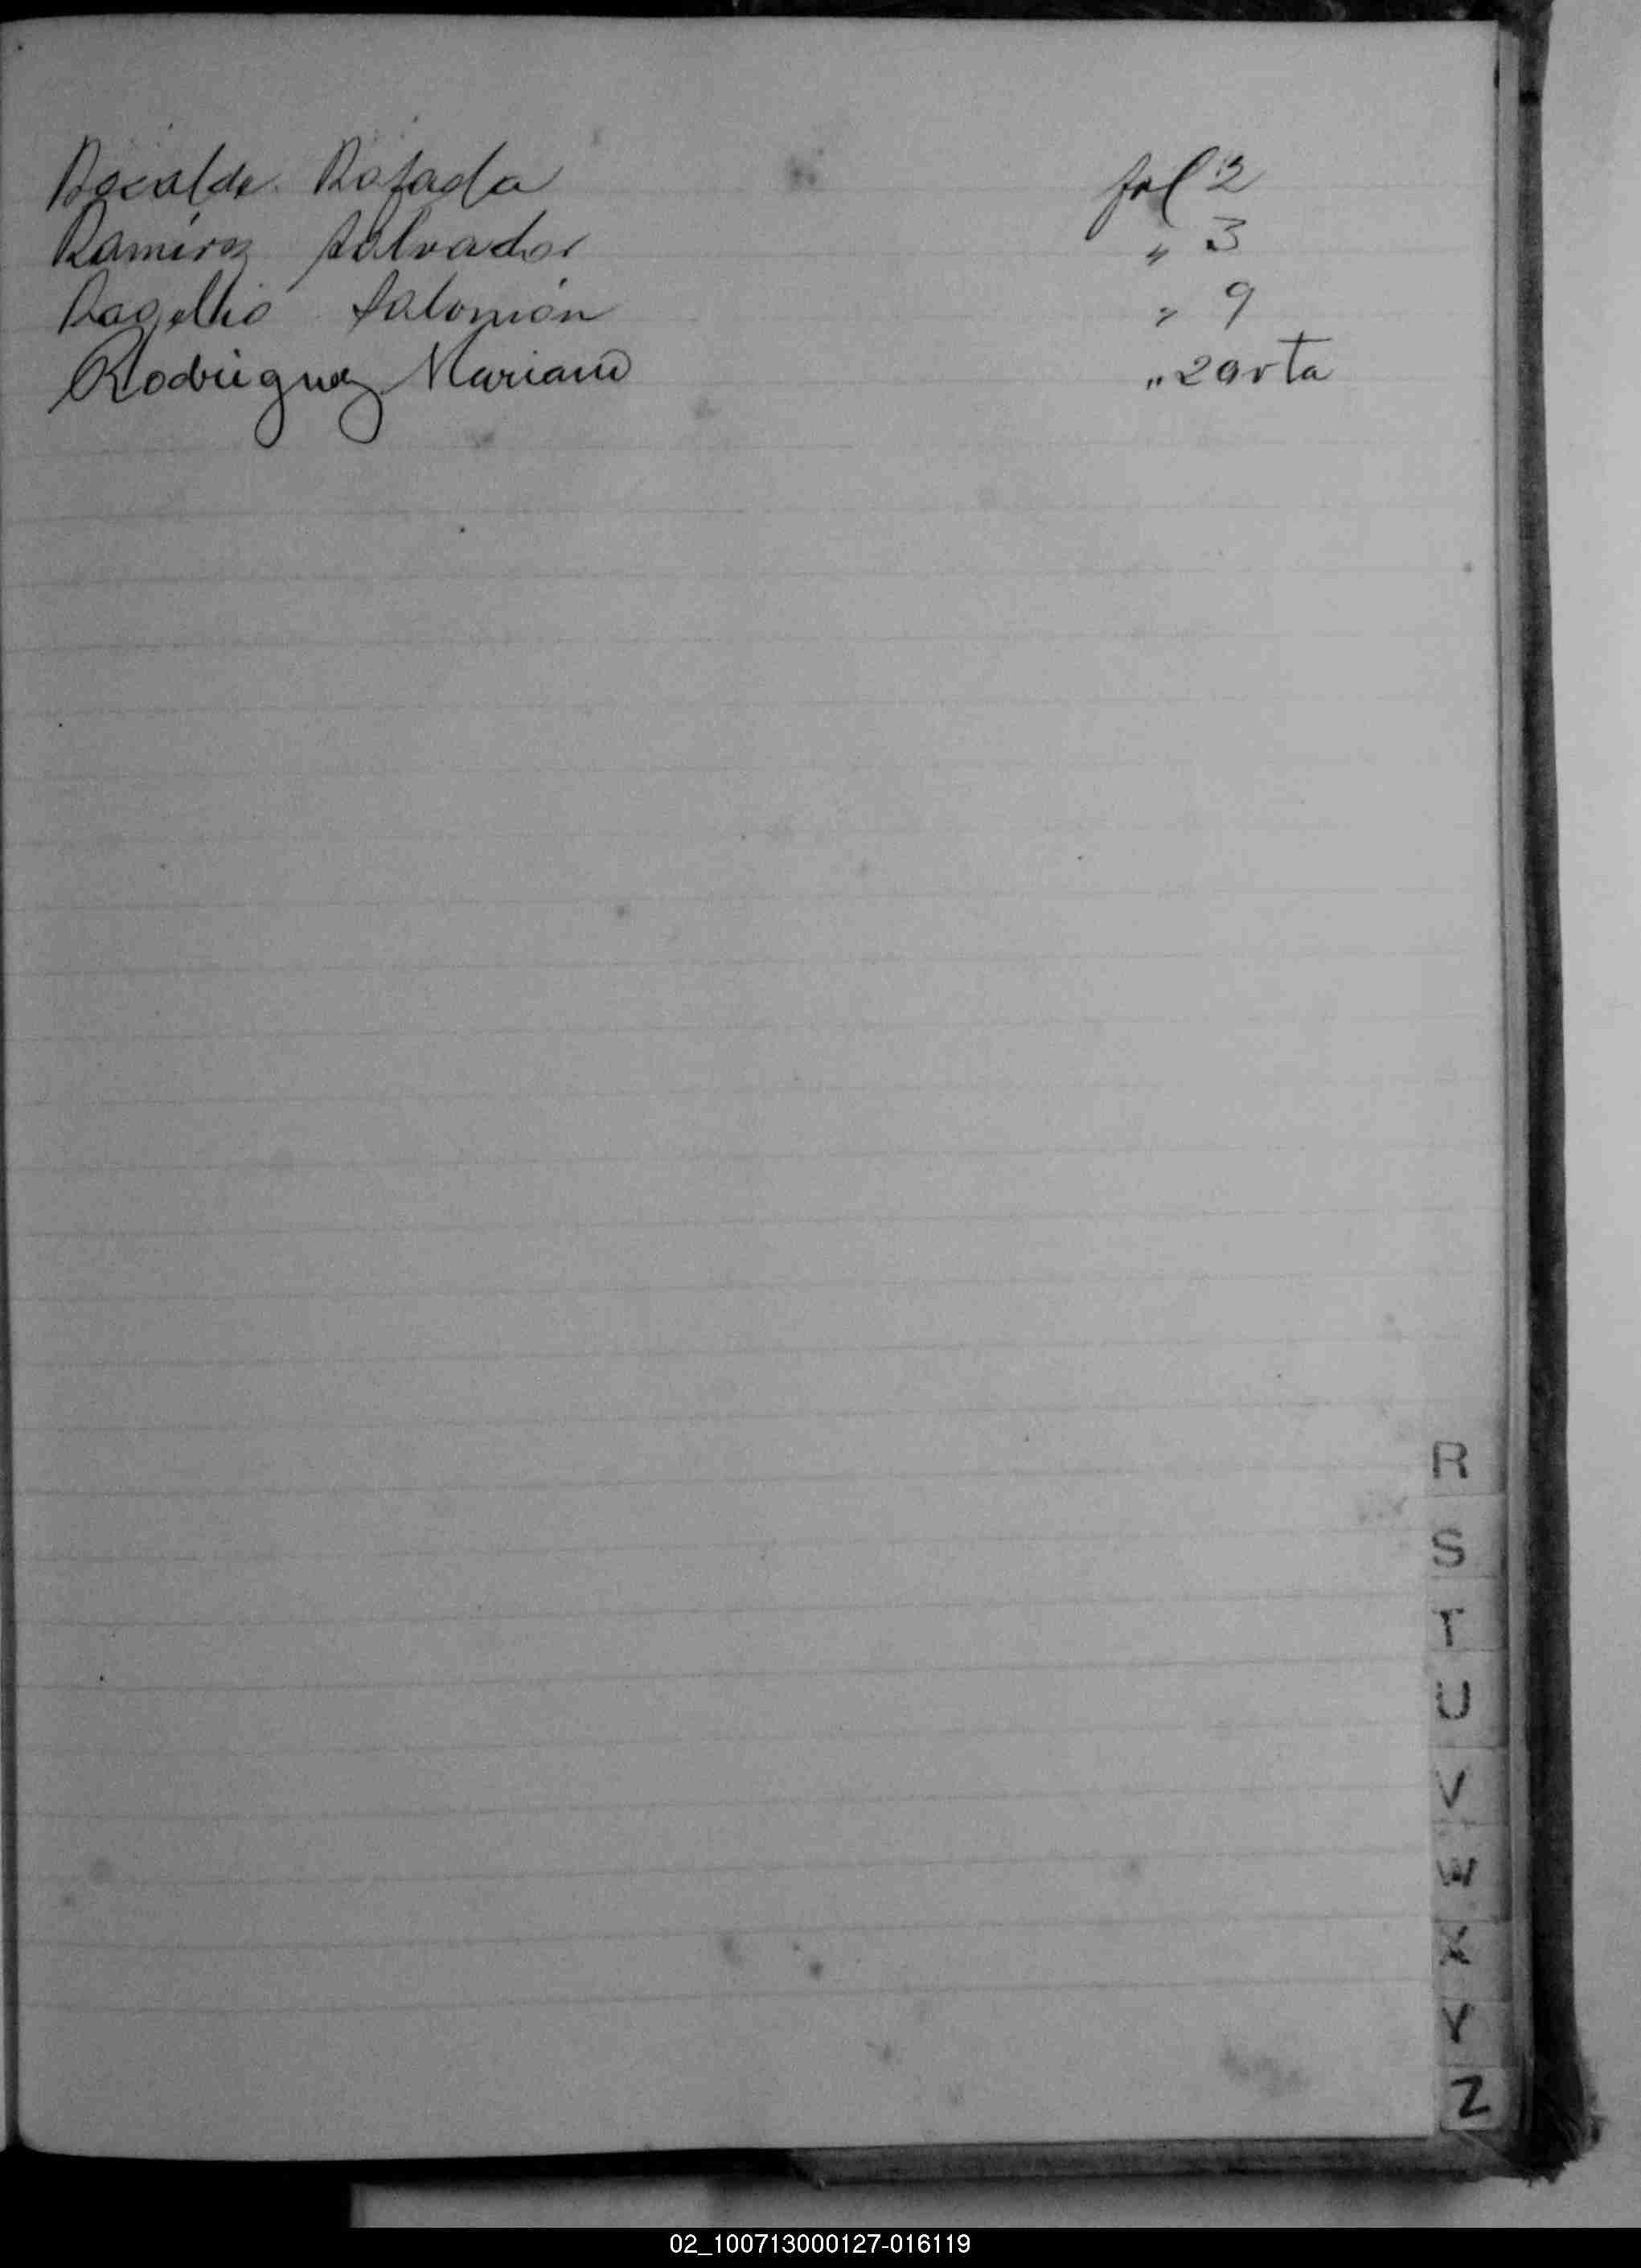 Recalde Rafaela fol 2
Ramírez Salvador " 3
Salomón " 9
Rodríguez Mariano " 20 vta
R
S
T
U
V
W
X
Y
Z
02_100713000127-016119